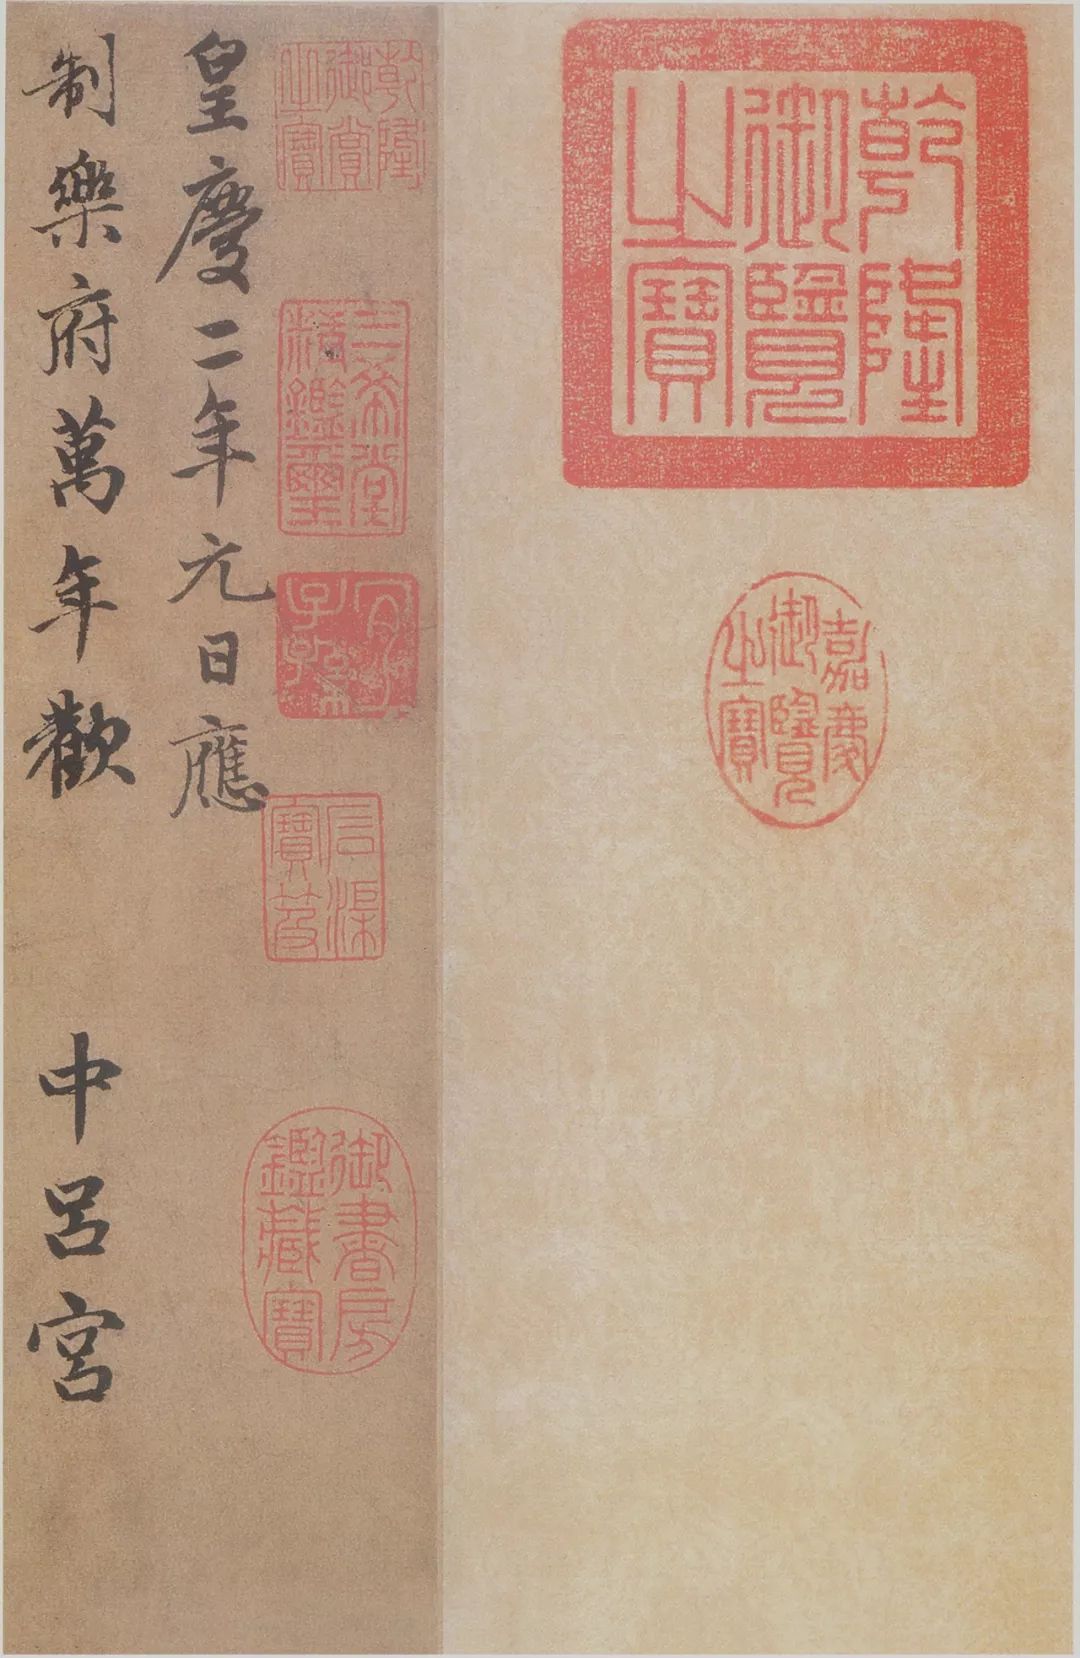 乾隆
御覽
之寶
嘉慶
御覽
之寶
乾隆
御賞
之寶
三希堂
精鑑璽
宜
子孫
石渠
寶笈
御書房
鑑藏寶
皇慶二年元日應
制樂府萬年歡 中呂宮